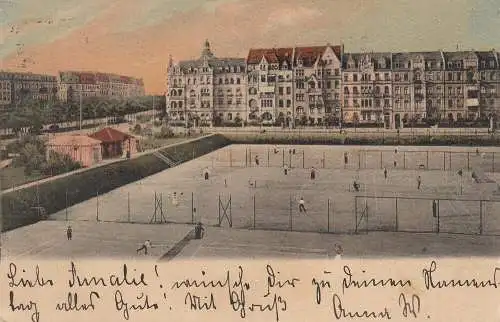 Liebe Amalie! wünsche Dir zu Deinen Namens
tag alles Gute! Mit Gruß Anna W.